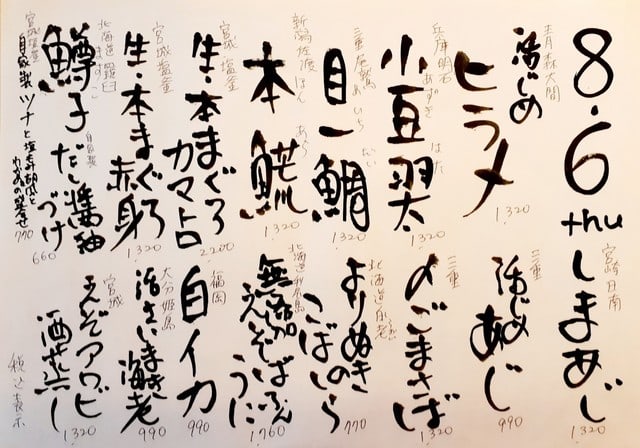 8.6
thu
青森大間
活じめ
ヒラメ
1,320
兵庫明石
あずき はた
小豆羽太
1,320
三重尾鷲
めいち だい
目一鯛
1,320
新潟佐渡
ほん あら
本𩺊
1,320
宮城 塩釜
生・本まぐろ
カマトロ
2,200
宮城 塩釜
生・本まぐろ
赤身
1,320
北海道 羅臼
ますこ
自家製
鱒子だし醤油
づけ
660
宮城塩釜
自家製ツナと塩もみ胡瓜と
わかめの
770
宮崎日南
しまあじ
1,320
三重
活じめ
あじ
990
三重
〆ごまさば
1,320
北海道
よりぬきの
こばしら
770
北海道利尻島
無添加
えぞばふん
うに
1,760
福岡
白イカ
990
大分 姫島
活きさいまき
海老
990
宮城
えぞアワビ
酒蒸し
1,320
税込表示